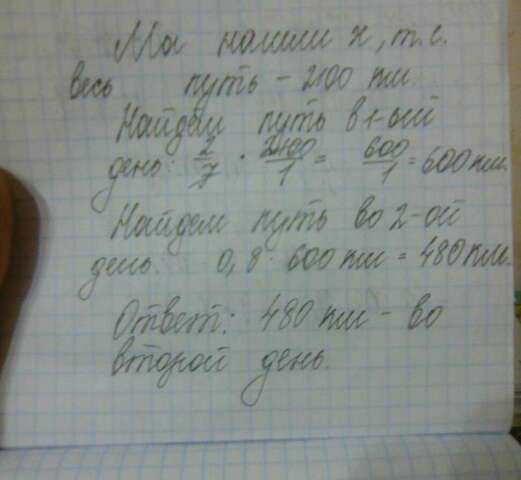 Ма нашли x, т.е.
весь путь - 2100 км
Найдем путь в 1-ый
день: 2/7 · 2100/1 = 600/1 = 600 км.
Найдем путь во 2-ой
день. 0,8 · 600 км = 480 км.
Ответ: 480 км - во
второй день.